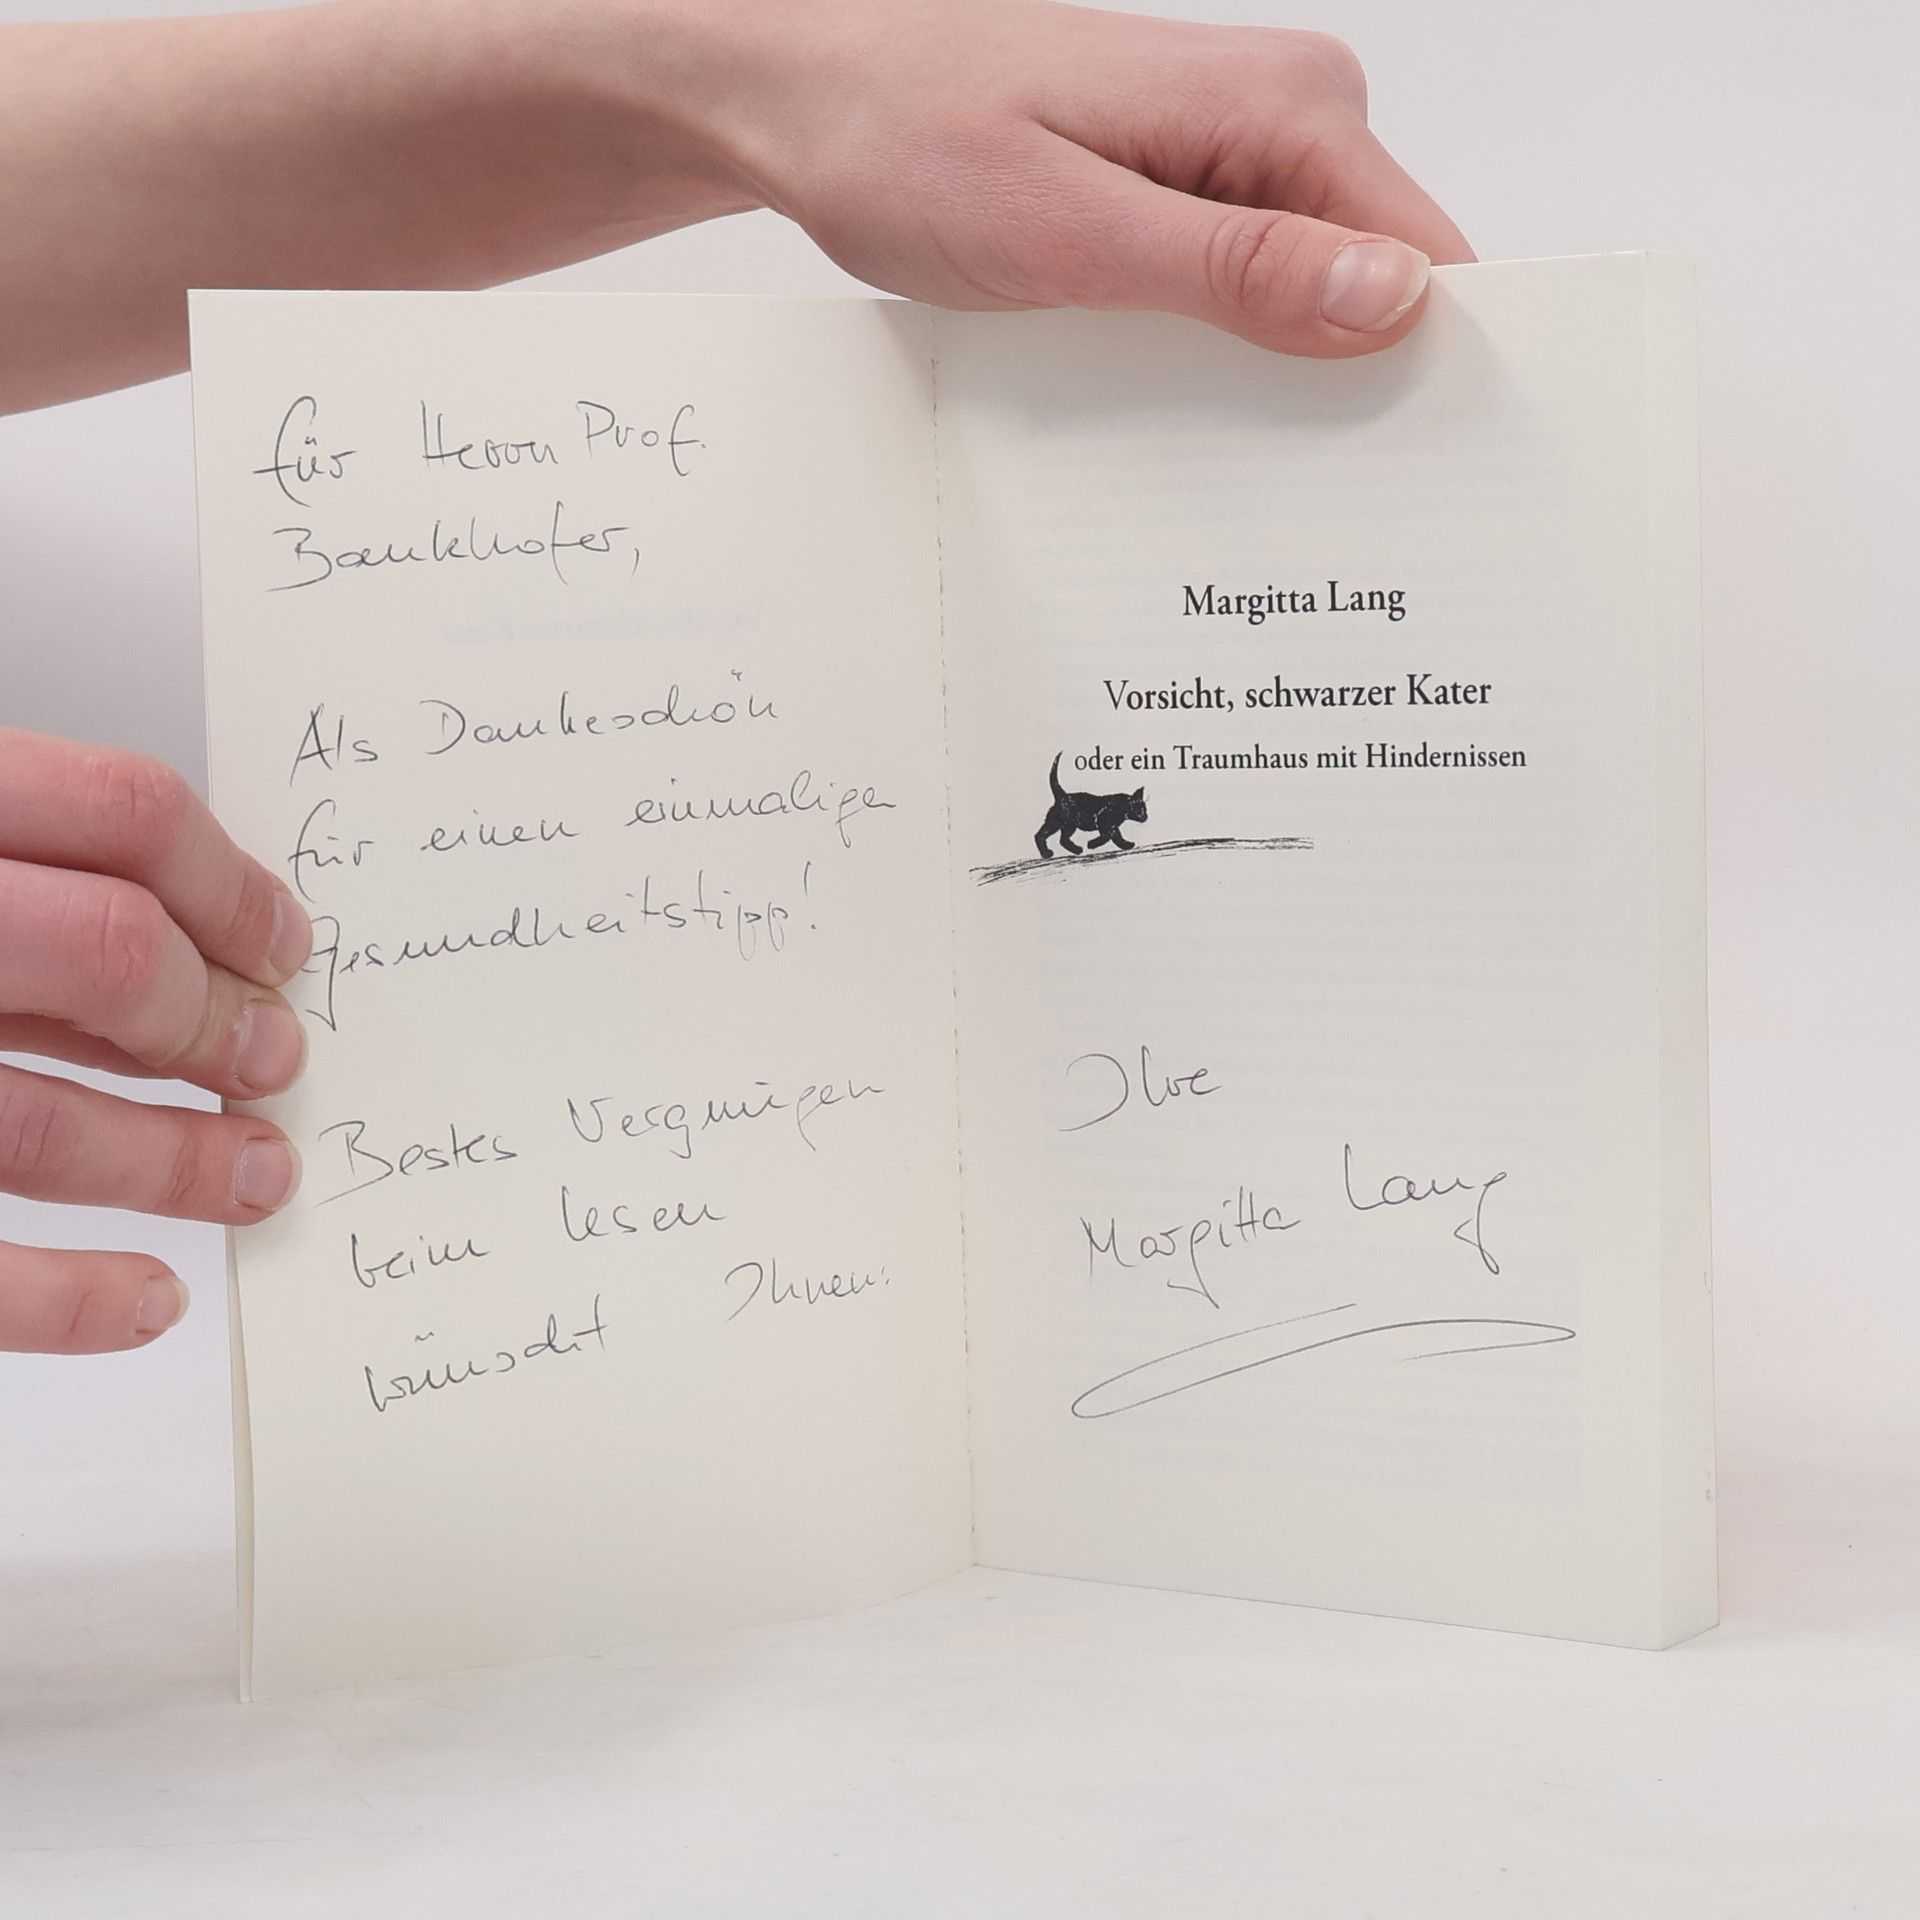 für Herrn Prof.
Bankhofer,
Als Dankeschön
für einen einmaligen
Gesundheitstipp!
Bestes Vergnügen
beim lesen
wünscht Ihnen:
Margitta Lang
Vorsicht, schwarzer Kater
oder ein Traumhaus mit Hindernissen
Ihre
Margitta Lang